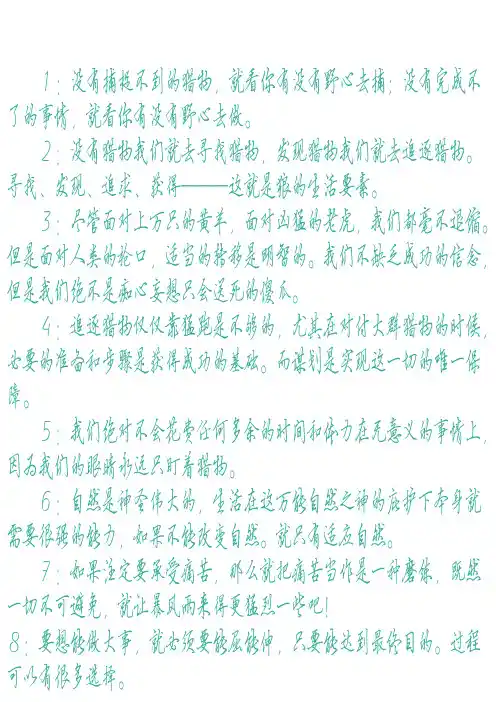 1：没有捕捉不到的猎物，就看你有没有野心去捕；没有完成不
了的事情，就看你有没有野心去做。
2：没有猎物我们就去寻找猎物，发现猎物我们就去追逐猎物。
寻找、发现、追求、获得——这就是狼的生活要素。
3：尽管面对上万只的黄羊，面对凶猛的老虎，我们都毫不退缩。
但是面对人类的枪口，适当的转移是明智的。我们不缺乏成功的信念，
但是我们绝不是痴心妄想只会送死的傻瓜。
4：追逐猎物仅仅靠猛跑是不够的，尤其在对付大群猎物的时候，
必要的准备和步骤是获得成功的基础。而谋划是实现这一切的唯一保
障。
5：我们绝对不会花费任何多余的时间和体力在无意义的事情上，
因为我们的眼睛永远只盯着猎物。
6：自然是神圣伟大的，生活在这万能自然之神的庇护下本身就
需要很强的能力，如果不能改变自然。就只有适应自然。
7：如果注定要承受痛苦，那么就把痛苦当作是一种磨练，既然
一切不可避免，就让暴风雨来得更猛烈一些吧！
8：要想能做大事，就必须要能屈能伸，只要能达到最终目的。过程
可以有很多选择。